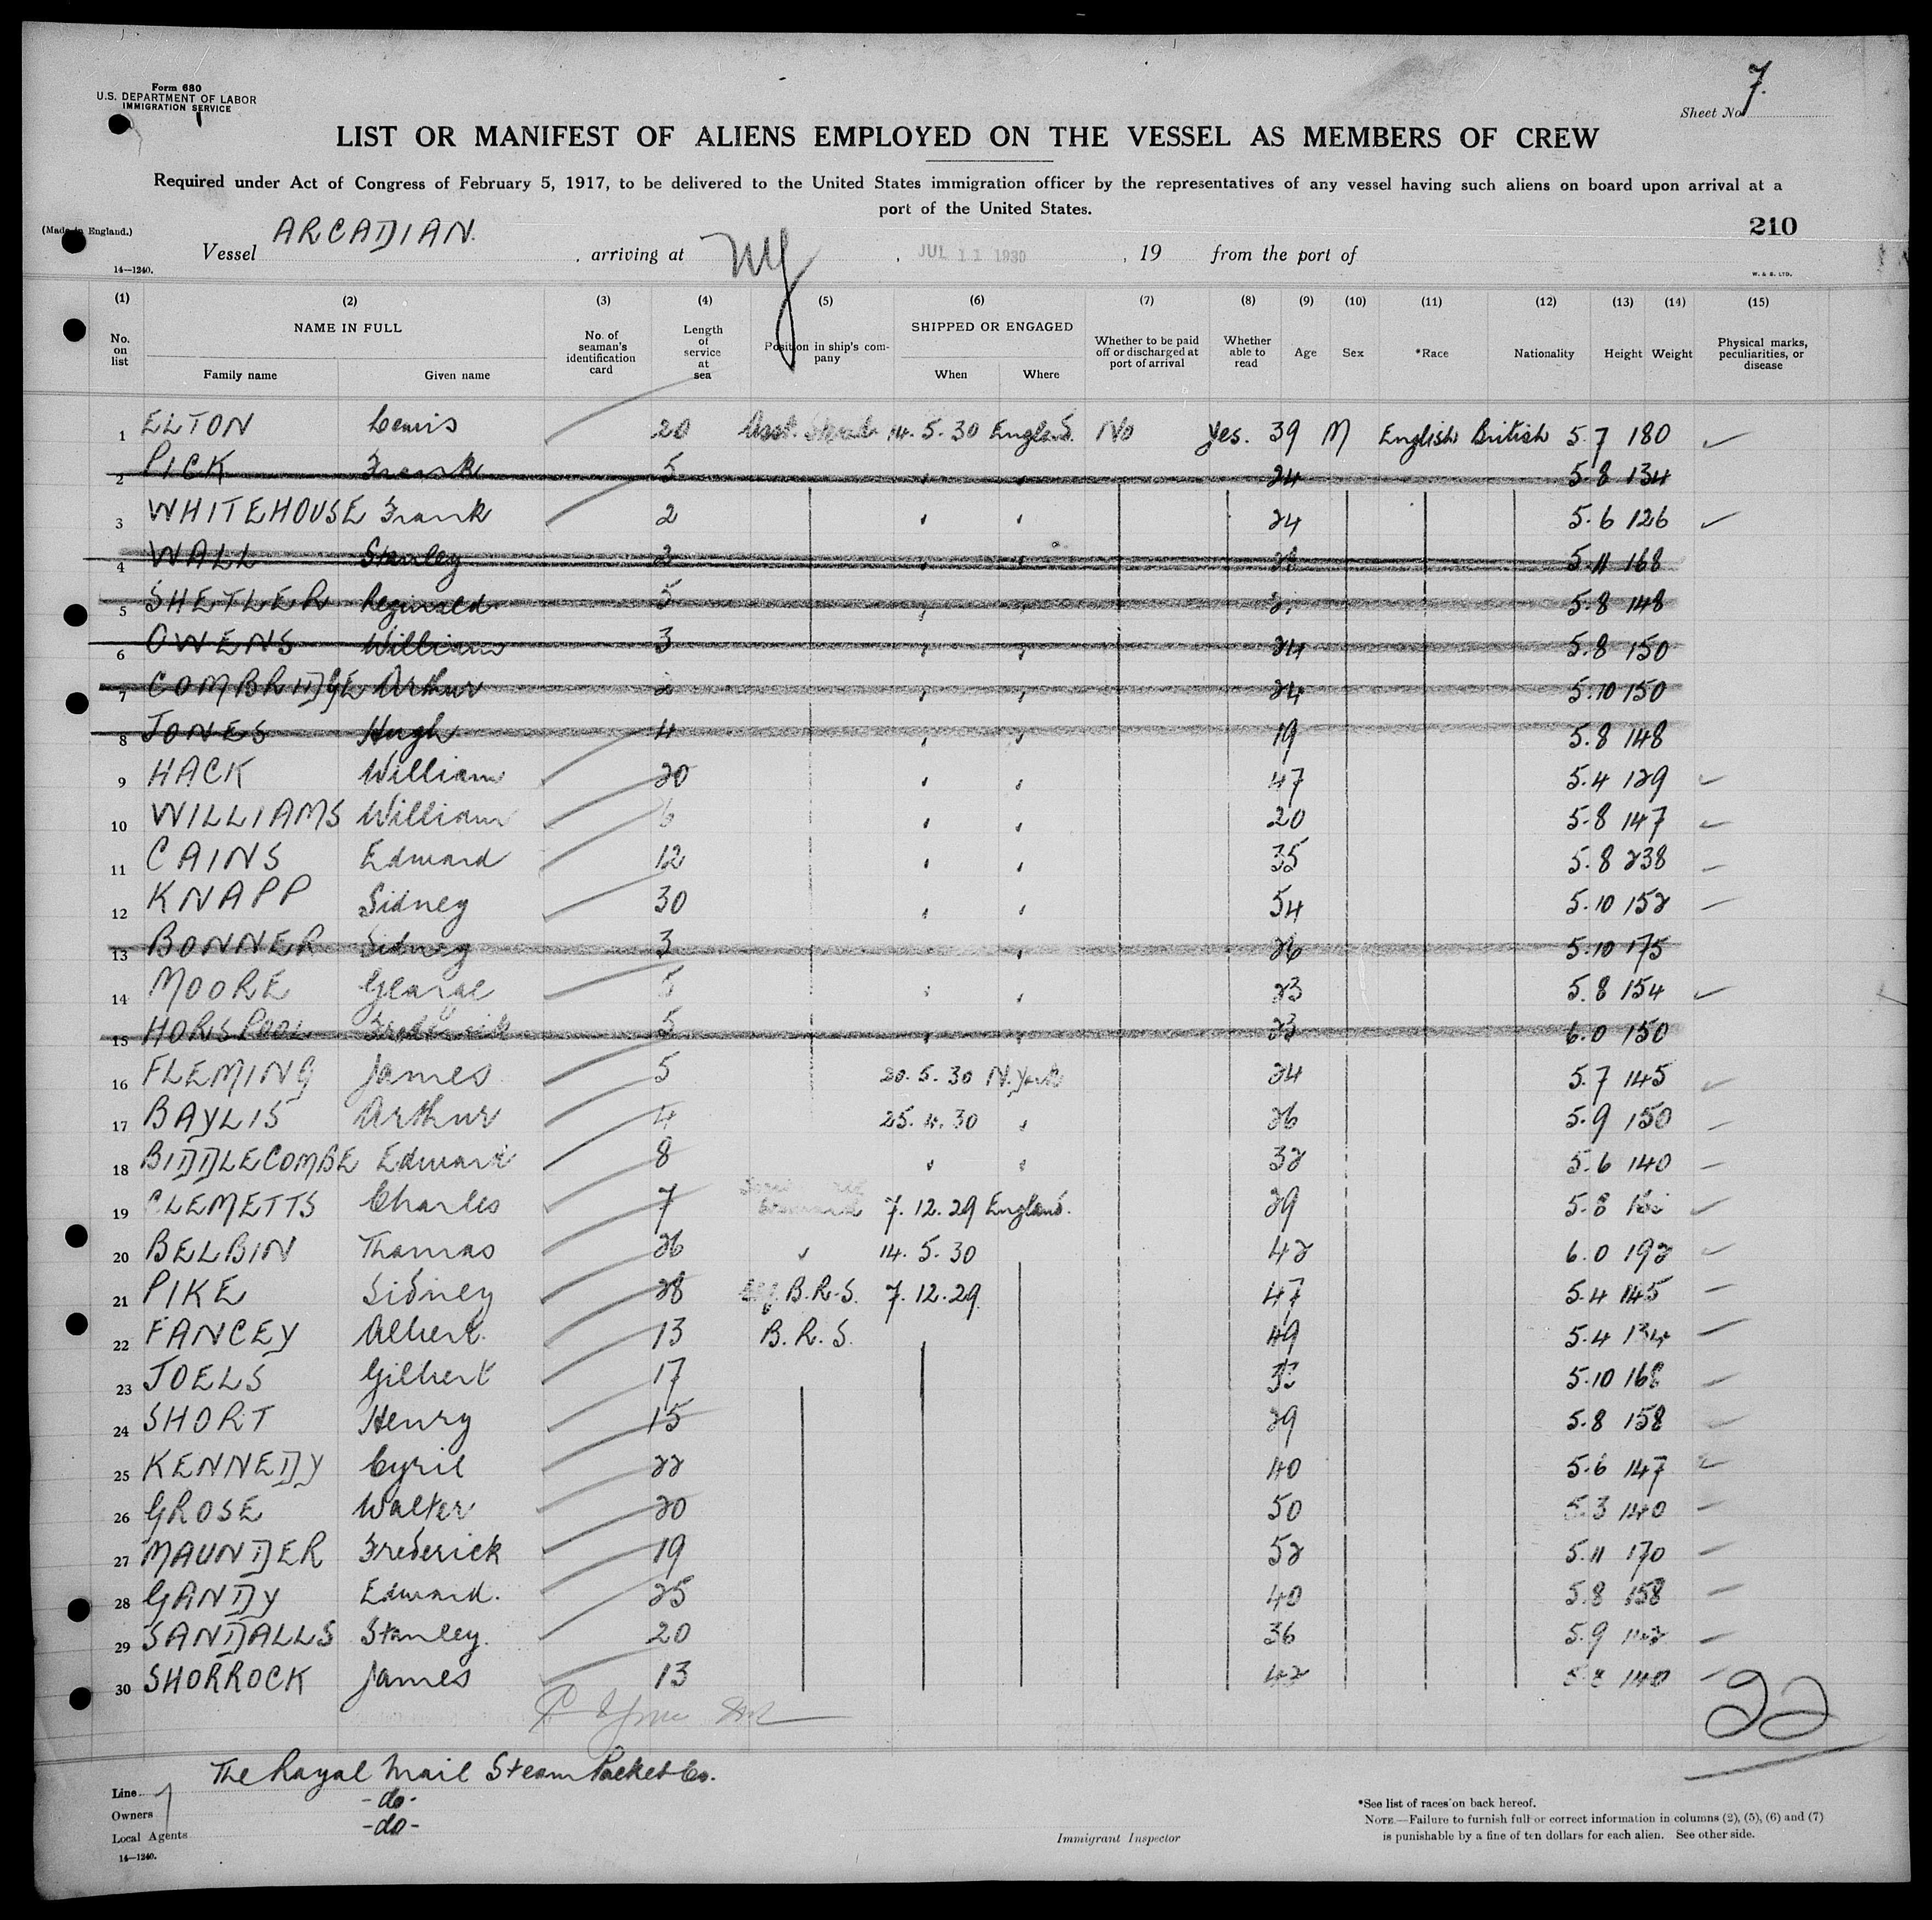 Form 680
U.S. DEPARTMENT OF LABOR
IMMIGRATION SERVICE
Sheet No. 7.
LIST OR MANIFEST OF ALIENS EMPLOYED ON THE VESSEL AS MEMBERS OF CREW
Required under Act of Congress of February 5, 1917, to be delivered to the United States immigration officer by the representatives of any vessel having such aliens on board upon arrival at a
port of the United States.
(Made in England.)
210
Vessel ARCADIAN. , arriving at NY , JUL 11 1930 , 19 from the port of
14—1240.
W. & S. LTD.
(1) (2) (3) (4) (5) (6) (7) (8) (9) (10) (11) (12) (13) (14) (15)
No. on list NAME IN FULL Family name Given name No. of seaman's identification card Length of service at sea Position in ship's company SHIPPED OR ENGAGED When Where Whether to be paid off or discharged at port of arrival Whether able to read Age Sex *Race Nationality Height Weight Physical marks, peculiarities, or disease
1 ELTON Lewis 20 Asst. 14.5.30 England. No Yes. 39 M English British 5.7 180
2 PICK Frank 5 " " 24 5.8 134
3 WHITEHOUSE Frank 2 " " 24 5.6 126
4 WALL Stanley 2 " " 5.11 168
5 SHETLER Reginald 5 " " 5.8 148
6 OWENS William 3 " " 24 5.8 150
7 COMBRIDGE Arthur 2 " " 24 5.10 150
8 JONES Hugh 4 " " 19 5.8 148
9 HACK William 20 " " 47 5.4 129
10 WILLIAMS William 6 " " 20 5.8 147
11 CAINS Edward 12 " " 35 5.8 238
12 KNAPP Sidney 30 " " 54 5.10 152
13 BONNER Sidney 3 " 26 5.10 175
14 MOORE George 5 " " 23 5.8 154
15 HORSPOOL Frederick 5 " " 6.0 150
16 FLEMING James 5 20.5.30 N.York 24 5.7 145
17 BAYLIS Arthur 4 25.4.30 " 26 5.9 150
18 BIDDLECOMBE Edward 8 " " 32 5.6 140
19 CLEMETTS Charles 7 7.12.29 England. 29 5.8
20 BELBIN Thomas 26 " 14.5.30 42 6.0 192
21 PIKE Sidney 28 B.R.S. 7.12.29. 47 5.4 145
22 FANCEY Albert. 13 B.R.S. 49 5.4 134
23 JOELS Gilbert 17 5.10 168
24 SHORT Henry 15 29 5.8 158
25 KENNEDY Cyril 22 40 5.6 147
26 GROSE Walter 20 50 5.3 140
27 MAUNDER Frederick 19 52 5.11 170
28 GANDY Edward. 25 40 5.8 158
29 SANDALLS Stanley. 20 36 5.9 142
30 SHORROCK James 13 42 5.8 140
22
Line The Royal Mail Steam Packet Co.
Owners -do-
Local Agents -do-
14—1240.
Immigrant Inspector
*See list of races on back hereof.
NOTE.—Failure to furnish full or correct information in columns (2), (5), (6) and (7)
is punishable by a fine of ten dollars for each alien. See other side.